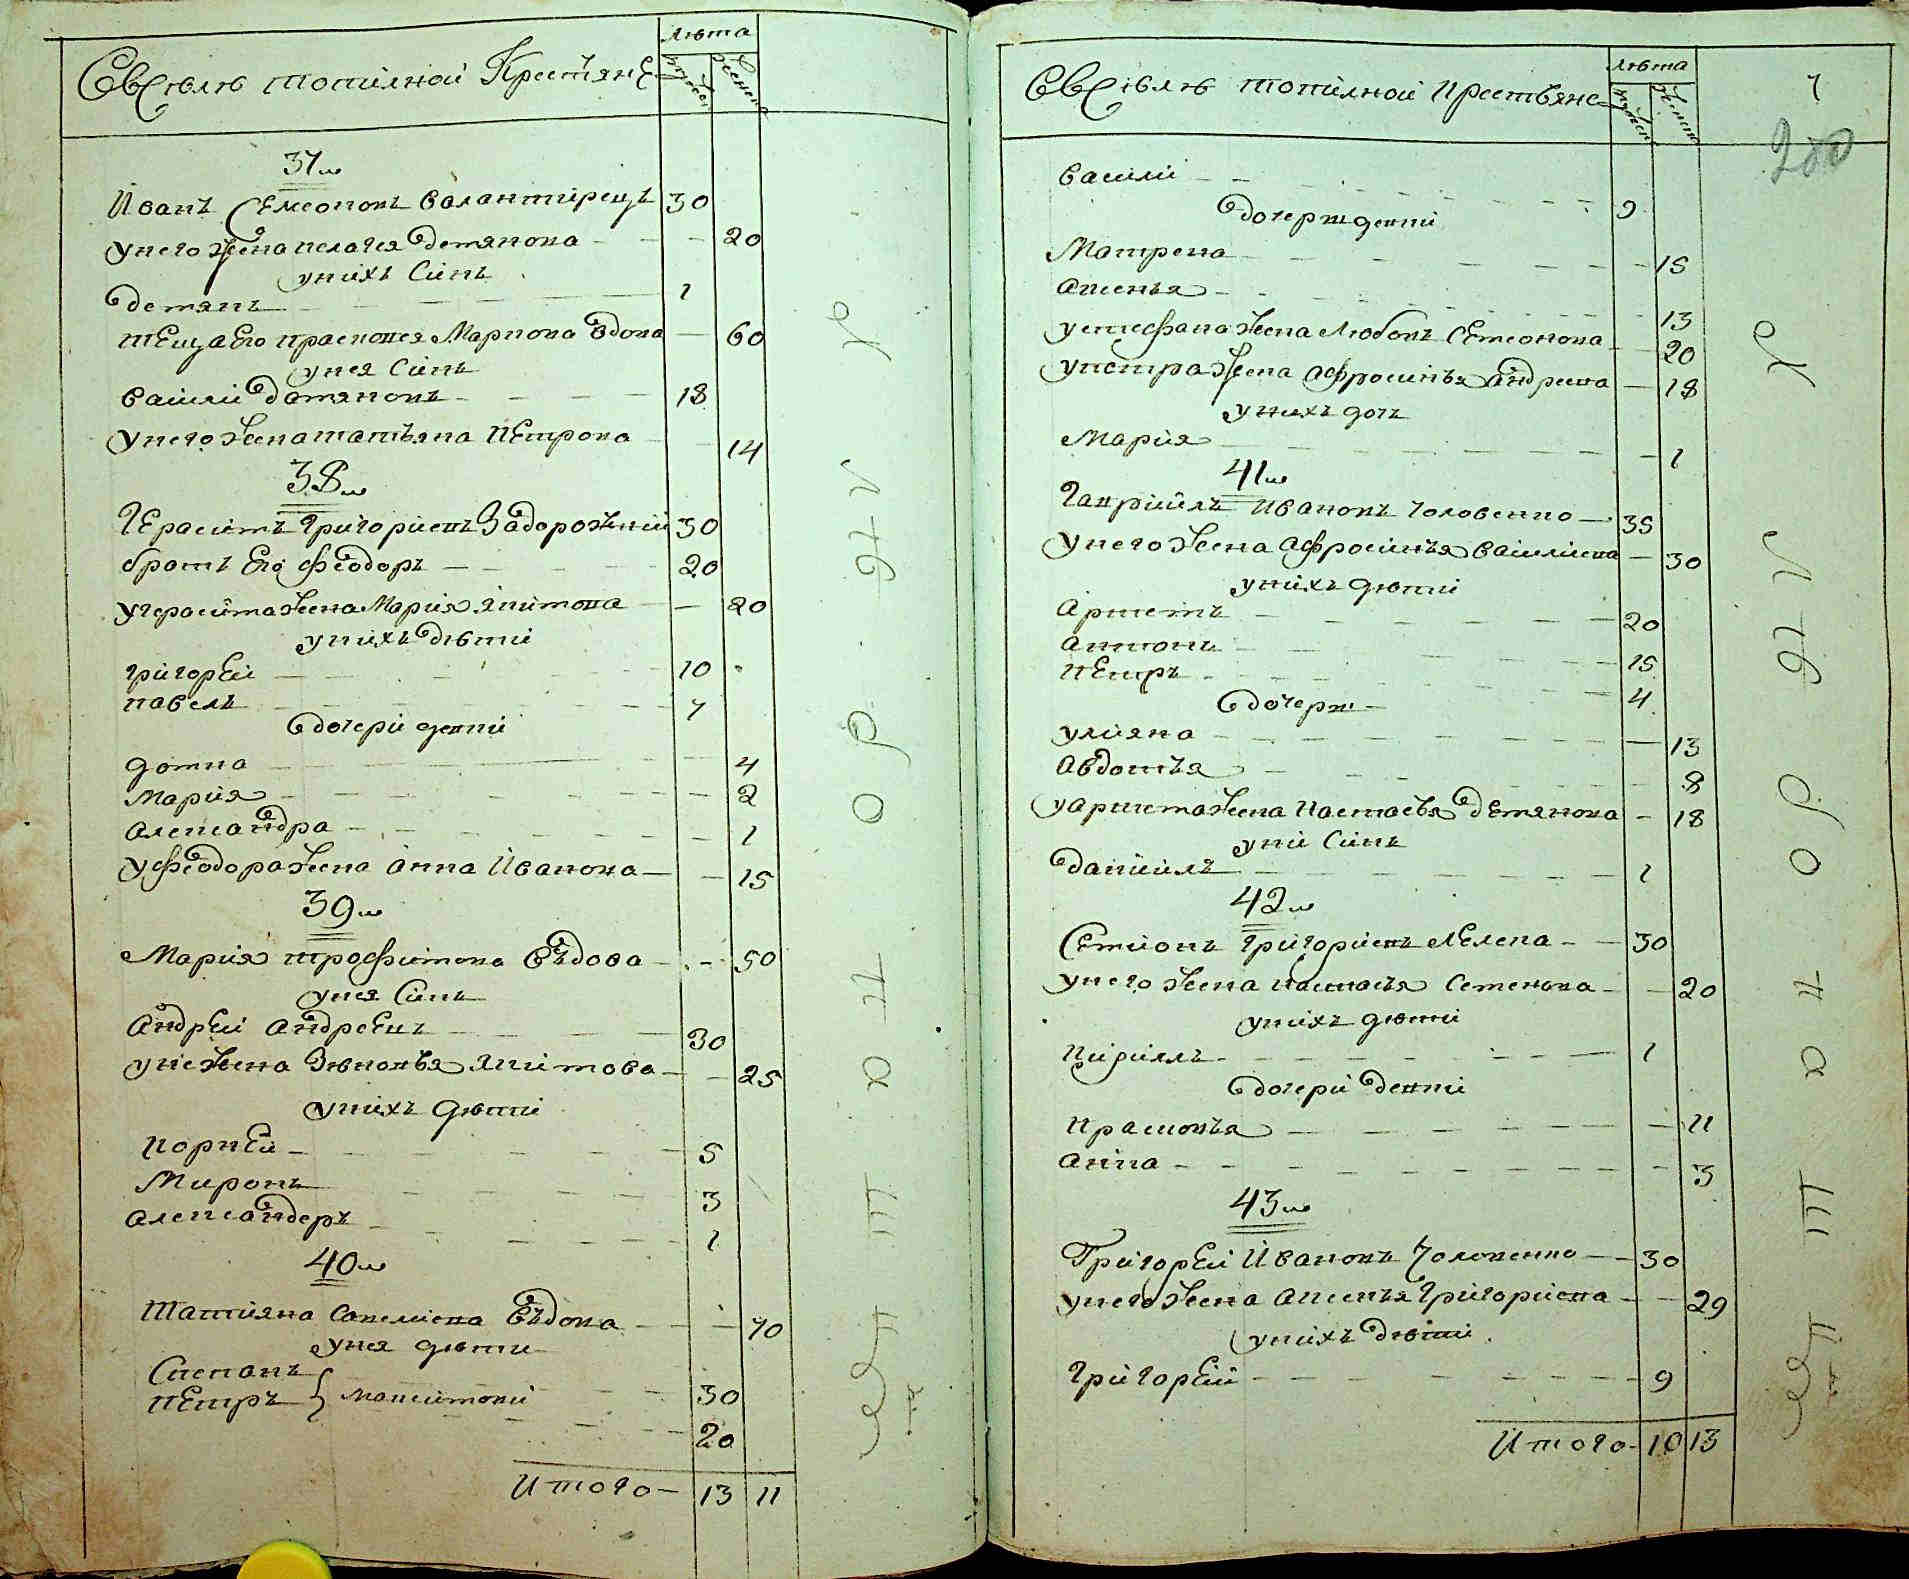 В Селѣ топилной Крестьянѣ
Лѣта
мужеск
женска
37ш
Иванъ Семеоновъ валантирецъ 30
унего жена пелагея Демянова 20
унихъ Синъ
Демянъ 1
тЕща Его прасковея Маркова вдова 60
унея Синъ
василий Домяновъ 18
унего жена татьяна ПЕтрова 14
38ш
ГЕрасимъ Григориевъ Задорожний 30
братъ Его Феодоръ 20
угерасима жена Мария якимова 20
унихъ Дѣти
григорЕй 10
павелъ 7
дочери дети
домна 4
Мария 2
александра 1
уфеодора жена анна Иванова 15
39ш
Мария трофимова въдова 50
унея Синъ
андрЕй андрЕевъ 30
унего жена Зѣновья якимова 25
унихъ дѣти
корнЕй 5
Миронъ 3
александеръ 1
40ш
татияна савелиева въдова 70
унея дѣти
Степанъ 30
пЕтръ } максимови 20
Итого 13 11
В Селѣ топилной крестьяне
Лѣта
мужеск
женск
7
280
василий 9
дочерш дети
Матрена 15
аксенья 13
устефана жена Любовъ СЕмеонова 20
упетра жена афросинья андреева 18
унихъ дочь
Мария 1
41ш
Гавриилъ Ивановъ головенко 35
унего жена афросинья василиева 30
унихъ дѣти
артемъ 20
антонъ 15
пЕтръ 4
дочерш
улияна 13
авдотья 8
уартема жена настасья дЕмянова 18
уни Синъ
даниилъ 1
42ш
Семионъ григориевъ лЕлека 30
унего жена настасья Семенова 20
унихъ дѣти
кирилъ 1
дочери дети
прасковья 11
анна 3
43ш
ГригорЕй Ивановъ головенко 30
унего жена аксенья григориева 29
унихъ дѣти
григорЕй 9
Итого 10 13